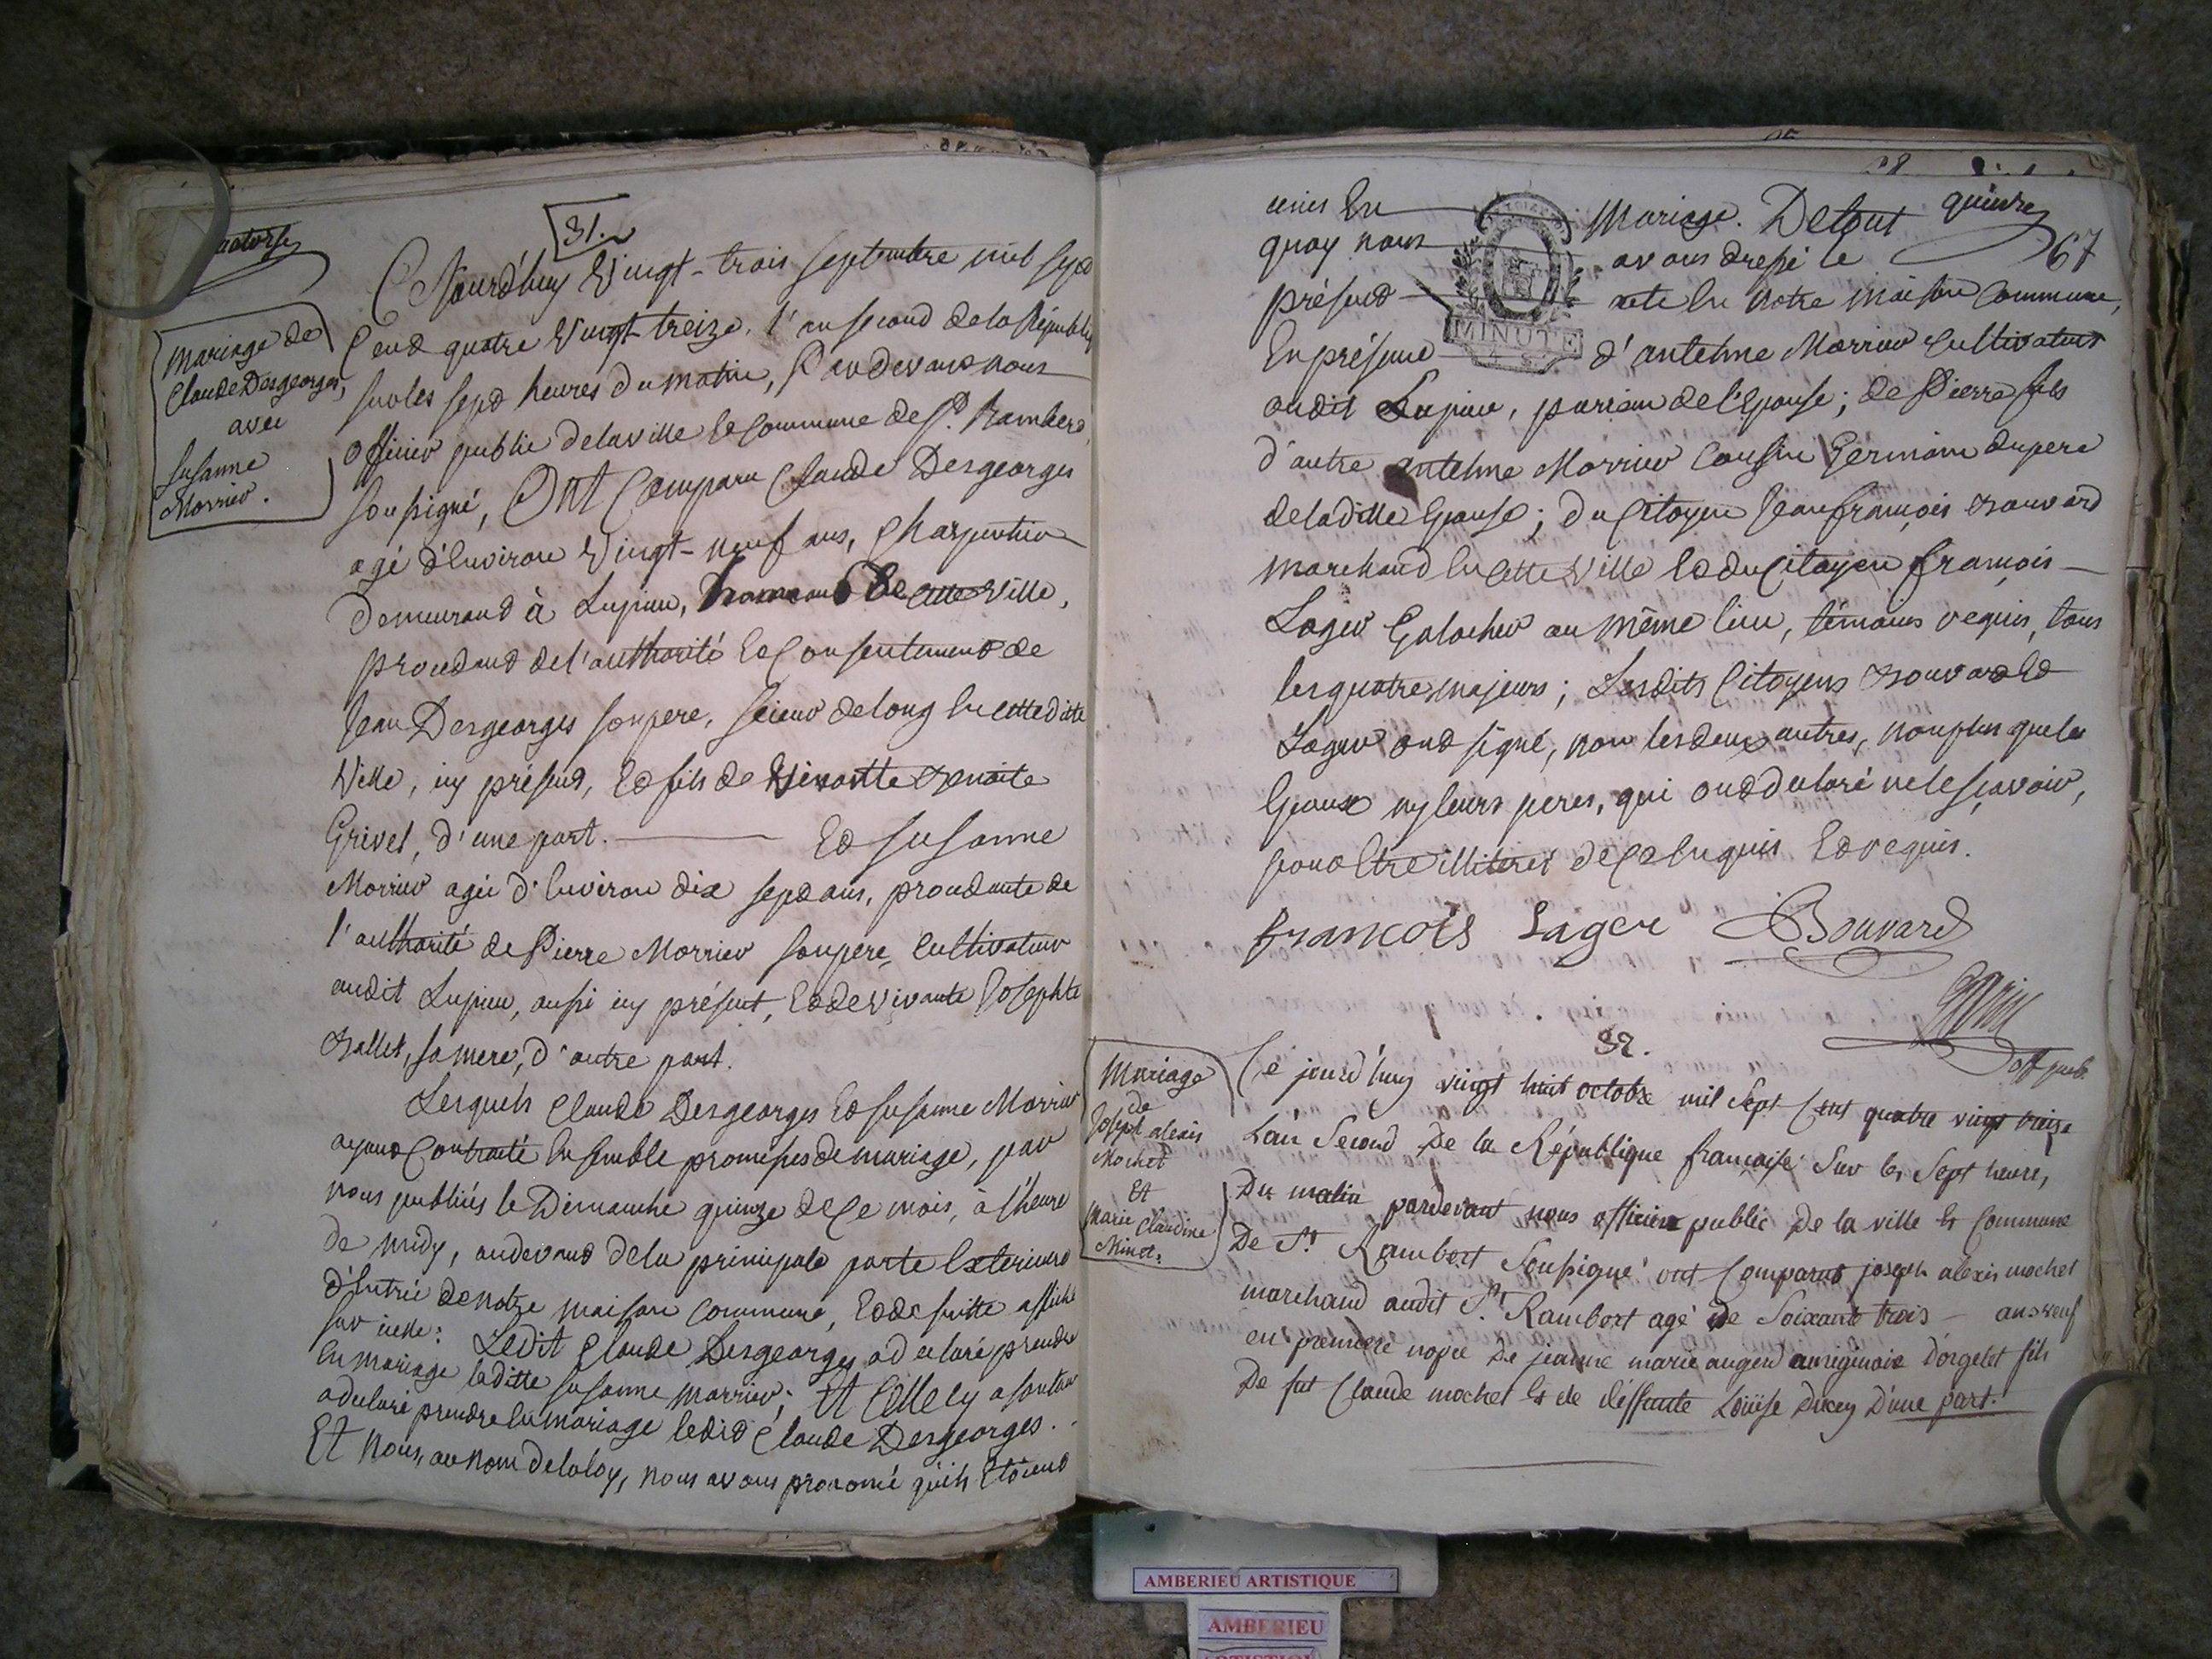 31.
Mariage de
Claude Desgeorges,
avec
Susanne
Morrier.
Cejourd'huy Vingt-trois septembre mil sept
Cent quatre Vingt-treize, l'an second de la Républiq
sur les sept heures du matin, Pardevant nous
officier public de la ville et Commune de St. Rambert
soussigné, Ont Comparu Claude Desgeorges
agé d'Environ Vingt-neuf ans, Charpentier
demeurant à Lupieu, hameau de cette Ville,
procedant de l'authorité et Consentement de
Jean Desgeorges son pere, scieur de long en cette ditte
Ville, icy présent, et fils de Vivante Benoite
Grivet, d'une part. Et Susanne
Morrier agée d'Environ dix sept ans, procedante de
l'authorité de Pierre Morrier son pere, Cultivateur
audit Lupieu, aussi icy présent, et de Vivante Josephte
Ballet, sa mere, d'autre part.
Lesquels Claude Desgeorges et Susanne Morrier
ayant Contracté Ensemble promesses de mariage, par
nous publiées le Dimanche quinze de Ce mois, à l'heure
de midy, audevant de la principale porte Exterieure
d'Entrée de notre maison Commune, et de suitte affiché
sur icelle: Ledit Claude Desgeorges a declaré prendre
En mariage laditte Susanne Morrier; Et Celle cy a son tour
a declaré prendre En mariage ledit Claude Desgeorges.
Et Nous, au nom de la loy, nous avons prononcé qu'ils Etoient
quinze
67
unis En Mariage. De tout
quoy nous avons dressé le
présent acte En notre maison Commune,
MINUTE
En présence d'antelme Morrier Cultivateur
audit Lupieu, parrain de l'Epouse; de Pierre fils
d'autre antelme Morrier Cousin Germain du pere
de laditte Epouse; du Citoyen Jean françois Bouvard
marchand En cette Ville et du Citoyen françois
Lager Galocher au même lieu, témoins requis, tous
les quatre majeurs; Lesdits Citoyens Bouvard et
Lager ont signé, non les deux autres, non plus que les
Epoux ny leurs peres, qui ont declaré ne le sçavoir,
pour Etre illiterés de Ce Enquis et requis.
François Lager Bouvard
off. pub.
32.
Mariage
de
Joseph alexis
Mochet
Et
Marie Claudine
Minet.
Ce jourd'huy vingt huit octobre mil Sept Cent quatre vingt treize
L'an Second De la République française Sur les Sept heures,
Du matin pardevant nous officier public De la ville et Commune
De St. Rambert Soussigné ont Comparus joseph alexis mochet
marchand audit St. Rambert agé de Soixante trois ans veuf
en premiere nopce De jeanne marie auger d'orgelet fils
De fut Claude mochet et de déffunte Loüise Ducey D'une part.
AMBERIEU ARTISTIQUE
AMBERIEU
ARTISTIQUE